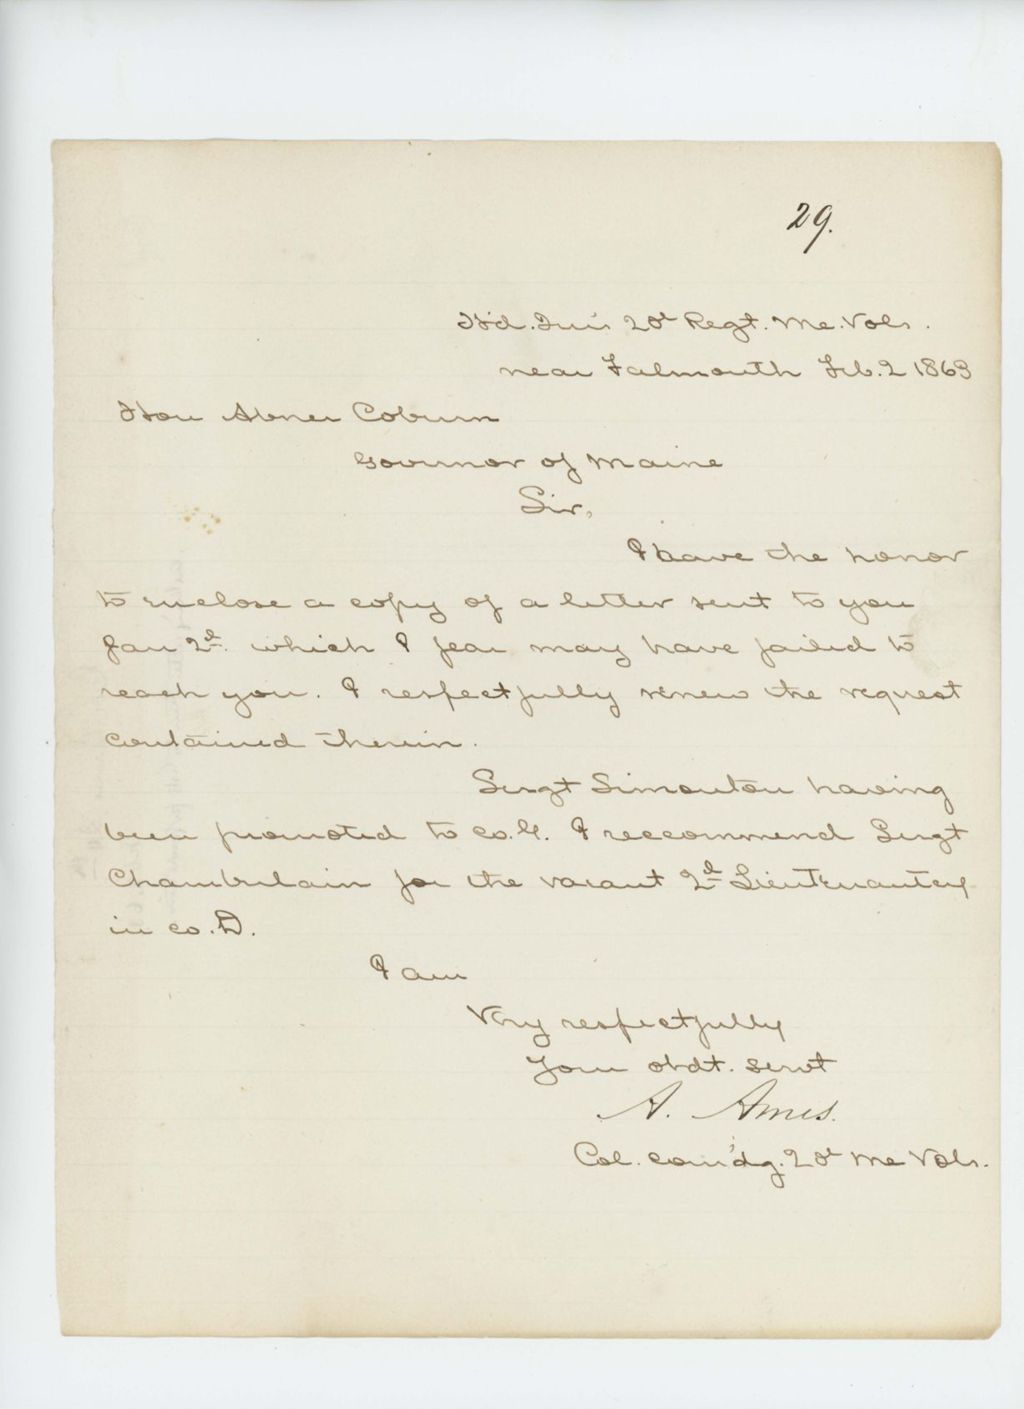 29.
Hd. Qu's 20th Regt. Me. Vols.
near Falmouth Feb. 2 1863
Hon Abner Coburn
Governor of Maine
Sir,
I have the honor
to enclose a copy of a letter sent to you
Jan 2d. which I fear may have failed to
reach you. I respectfully renew the request
contained therein.
Sergt Simonton having
been promoted to Co. G. I reccommend Sergt
Chamberlain for the vacant 2d Lieutenantcy
in Co. D.
I am
Very respectfully
Your obdt. servt
A. Ames.
Col. com'dg. 20th Me Vols.